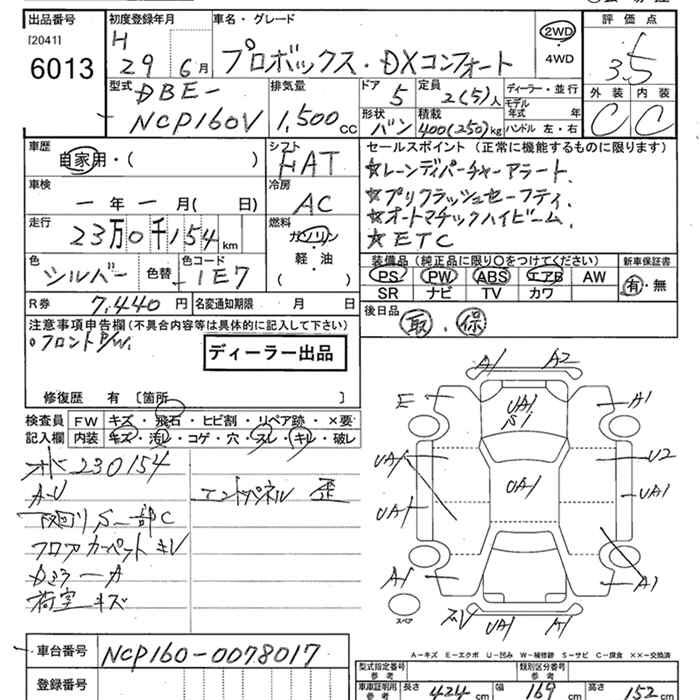 出品番号
[2041]
6013
初度登録年月
H
29 6月
車名・グレード
プロボックス・DXコンフォート
2WD
4WD
評価点
3.5
外装 内装
C C
型式
DBE-
NCP160V
排気量
1,500cc
ドア
5
定員
2(5)人
形状
バン
積載
400(250)kg
ディーラー・並行
モデル年式 年
ハンドル 左・右
車歴
自家用・( )
シフト
FAT
車検
一年一月( 日)
冷房
AC
走行
23万0千154km
燃料
ガソリン
軽・油
( )
色
シルバー
色替
色コード
1E7
R券
7,440円
名変通知期限 月 日
セールスポイント(正常に機能するものに限ります)
☆レーンディパーチャーアラート、
☆プリクラッシュセーフティ、
☆オートマチックハイビーム、
☆ETC
装備品(純正品に限り○をつけてください)
PS PW ABS エアB AW
SR ナビ TV カワ
新車保証書
有・無
後日品
取・保
注意事項申告欄(不具合内容等は具体的に記入して下さい)
○フロントP/W.
ディーラー出品
修復歴 有 [箇所 ]
検査員記入欄
FW キズ・飛石・ヒビ割・リペア跡・×要
内装 キズ・汚レ・コゲ・穴・スレ・キレ・破レ
オド230154
A・U
下回りS一部C
フロアカーペットキレ
荷室キズ
エンドパネル 歪
A1 A2
E
UA1
S1
A1
UA1
UA1
U2
UA1
UA1
A1
A1
スペア
UA1
A1
A-キズ E-エクボ U-凹み W-補修跡 S-サビ C-腐食 XX-交換済
車台番号
NCP160-0078017
登録番号
型式指定番号
参考
類別区分番号
参考
車庫証明用
参考
長さ 424cm
幅 169cm
高さ 152cm